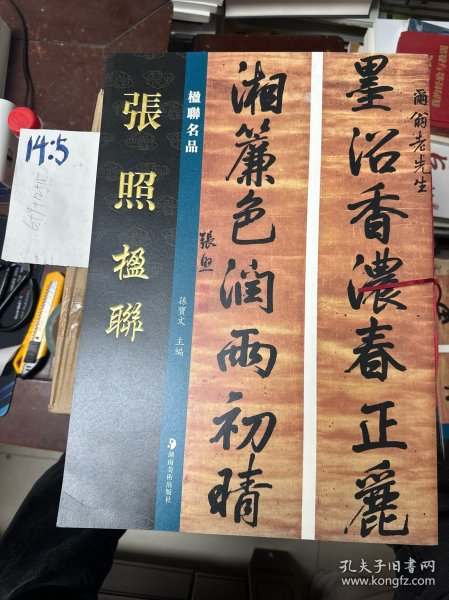 張照楹聯
楹聯名品
孫寶文 主編
湖南美術出版社
爾翁老先生
墨沼香濃春正麗
湘簾色潤雨初晴
張照
14:5
6+9+12+15
我的经验与
孔夫子旧书网
www.kongfz.com